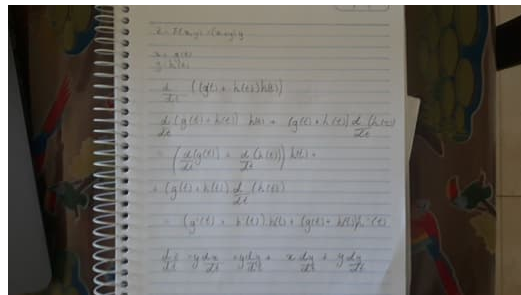 z = F(x,y) = (x+y)y
x = g(t)
y = h(t)
d/dt ((g(t) + h(t))h(t))
d/dt (g(t) + h(t)) h(t) + (g(t) + h(t)) d/dt (h(t))
= (d/dt (g(t)) + d/dt (h(t))) h(t) +
+ (g(t) + h(t)) d/dt (h(t))
= (g'(t) + h'(t)) h(t) + (g(t) + h(t)) h'(t)
dz/dt = y dx/dt + y dy/dt + x dy/dt + y dy/dt